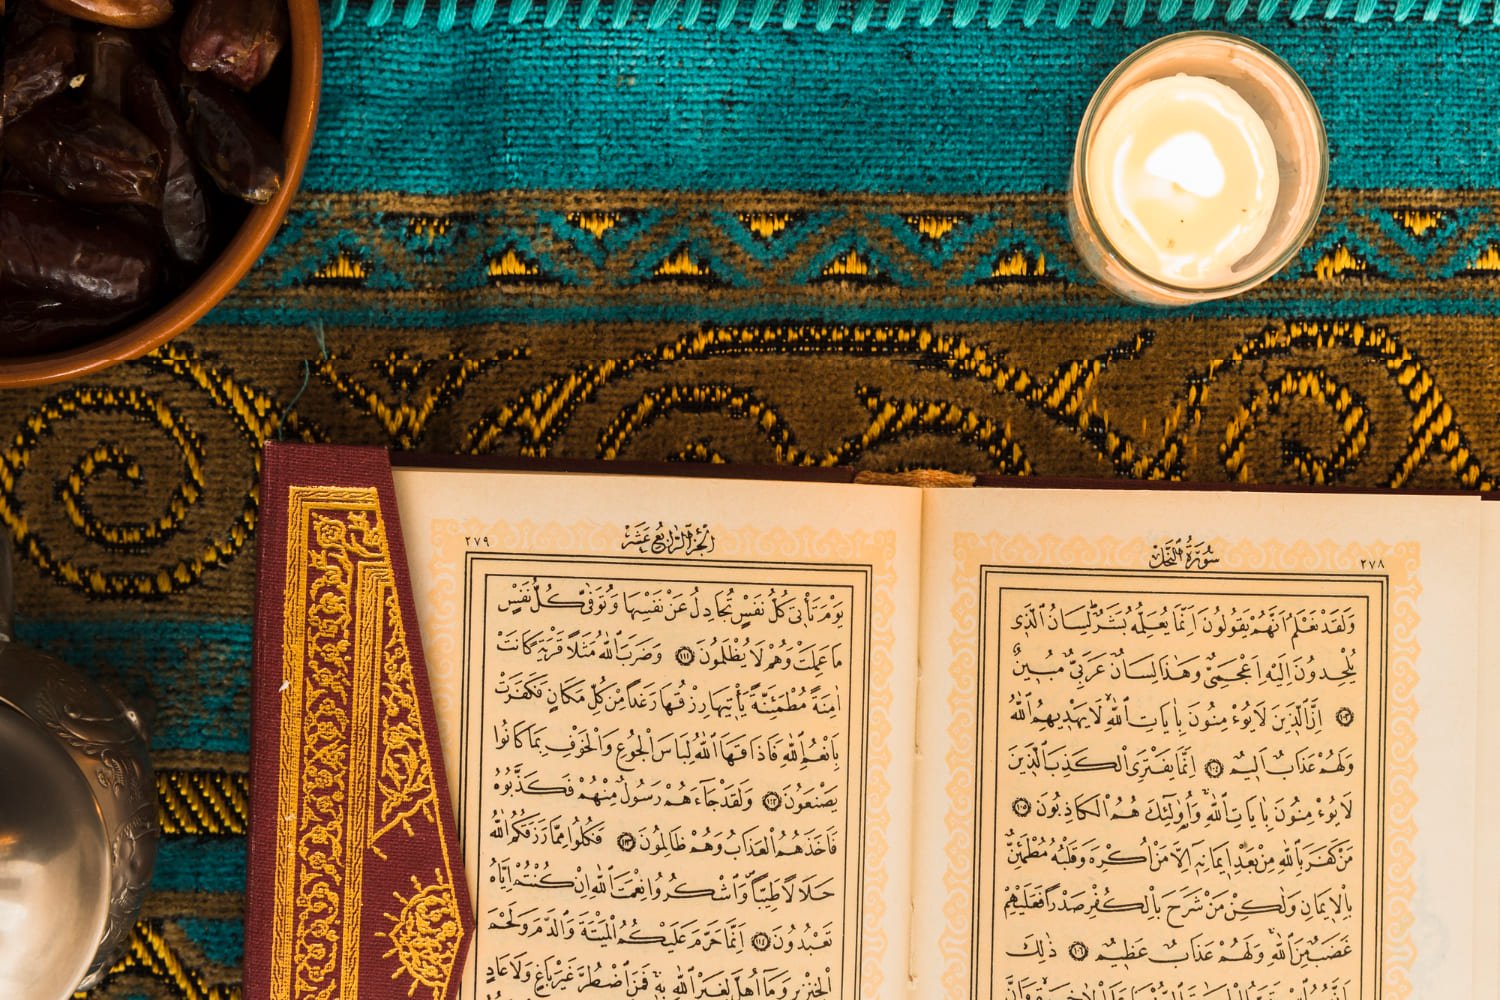 سُورَةُ النَّحْلِ
٢٧٨
وَلَقَدْ نَعْلَمُ اَنَّهُمْ يَقُولُونَ اِنَّمَا يُعَلِّمُهُ بَشَرٌ لِسَانُ الَّذٖى
يُلْحِدُونَ اِلَيْهِ اَعْجَمِىٌّ وَهٰذَا لِسَانٌ عَرَبِىٌّ مُبٖينٌ
﴿١٠٣﴾ اِنَّ الَّذٖينَ لَا يُؤْمِنُونَ بِاٰيَاتِ اللّٰهِ لَا يَهْدٖيهِمُ اللّٰهُ
وَلَهُمْ عَذَابٌ اَلٖيمٌ ﴿١٠٤﴾ اِنَّمَا يَفْتَرِى الْكَذِبَ الَّذٖينَ
لَا يُؤْمِنُونَ بِاٰيَاتِ اللّٰهِ وَاُولٰٓئِكَ هُمُ الْكَاذِبُونَ ﴿١٠٥﴾
مَنْ كَفَرَ بِاللّٰهِ مِنْ بَعْدِ اٖيمَانِهٖٓ اِلَّا مَنْ اُكْرِهَ وَقَلْبُهُ مُطْمَئِنٌّ
بِالْاٖيمَانِ وَلٰكِنْ مَنْ شَرَحَ بِالْكُفْرِ صَدْرًا فَعَلَيْهِمْ
غَضَبٌ مِنَ اللّٰهِ وَلَهُمْ عَذَابٌ عَظٖيمٌ ﴿١٠٦﴾ ذٰلِكَ
اَلْجُزْءُ الرَّابِعُ عَشَرَ
٢٧٩
يَوْمَ تَأْتٖى كُلُّ نَفْسٍ تُجَادِلُ عَنْ نَفْسِهَا وَتُوَفّٰى كُلُّ نَفْسٍ
مَا عَمِلَتْ وَهُمْ لَا يُظْلَمُونَ ﴿١١١﴾ وَضَرَبَ اللّٰهُ مَثَلًا قَرْيَةً كَانَتْ
اٰمِنَةً مُطْمَئِنَّةً يَأْتٖيهَا رِزْقُهَا رَغَدًا مِنْ كُلِّ مَكَانٍ فَكَفَرَتْ
بِاَنْعُمِ اللّٰهِ فَاَذَاقَهَا اللّٰهُ لِبَاسَ الْجُوعِ وَالْخَوْفِ بِمَا كَانُوا
يَصْنَعُونَ ﴿١١٢﴾ وَلَقَدْ جَٓاءَهُمْ رَسُولٌ مِنْهُمْ فَكَذَّبُوهُ
فَاَخَذَهُمُ الْعَذَابُ وَهُمْ ظَالِمُونَ ﴿١١٣﴾ فَكُلُوا مِمَّا رَزَقَكُمُ اللّٰهُ
حَلَالًا طَيِّبًا وَاشْكُرُوا نِعْمَتَ اللّٰهِ اِنْ كُنْتُمْ اِيَّاهُ
تَعْبُدُونَ ﴿١١٤﴾ اِنَّمَا حَرَّمَ عَلَيْكُمُ الْمَيْتَةَ وَالدَّمَ وَلَحْمَ
الْخِنْزٖيرِ وَمَٓا اُهِلَّ لِغَيْرِ اللّٰهِ بِهٖ فَمَنِ اضْطُرَّ غَيْرَ بَاغٍ وَلَا عَادٍ